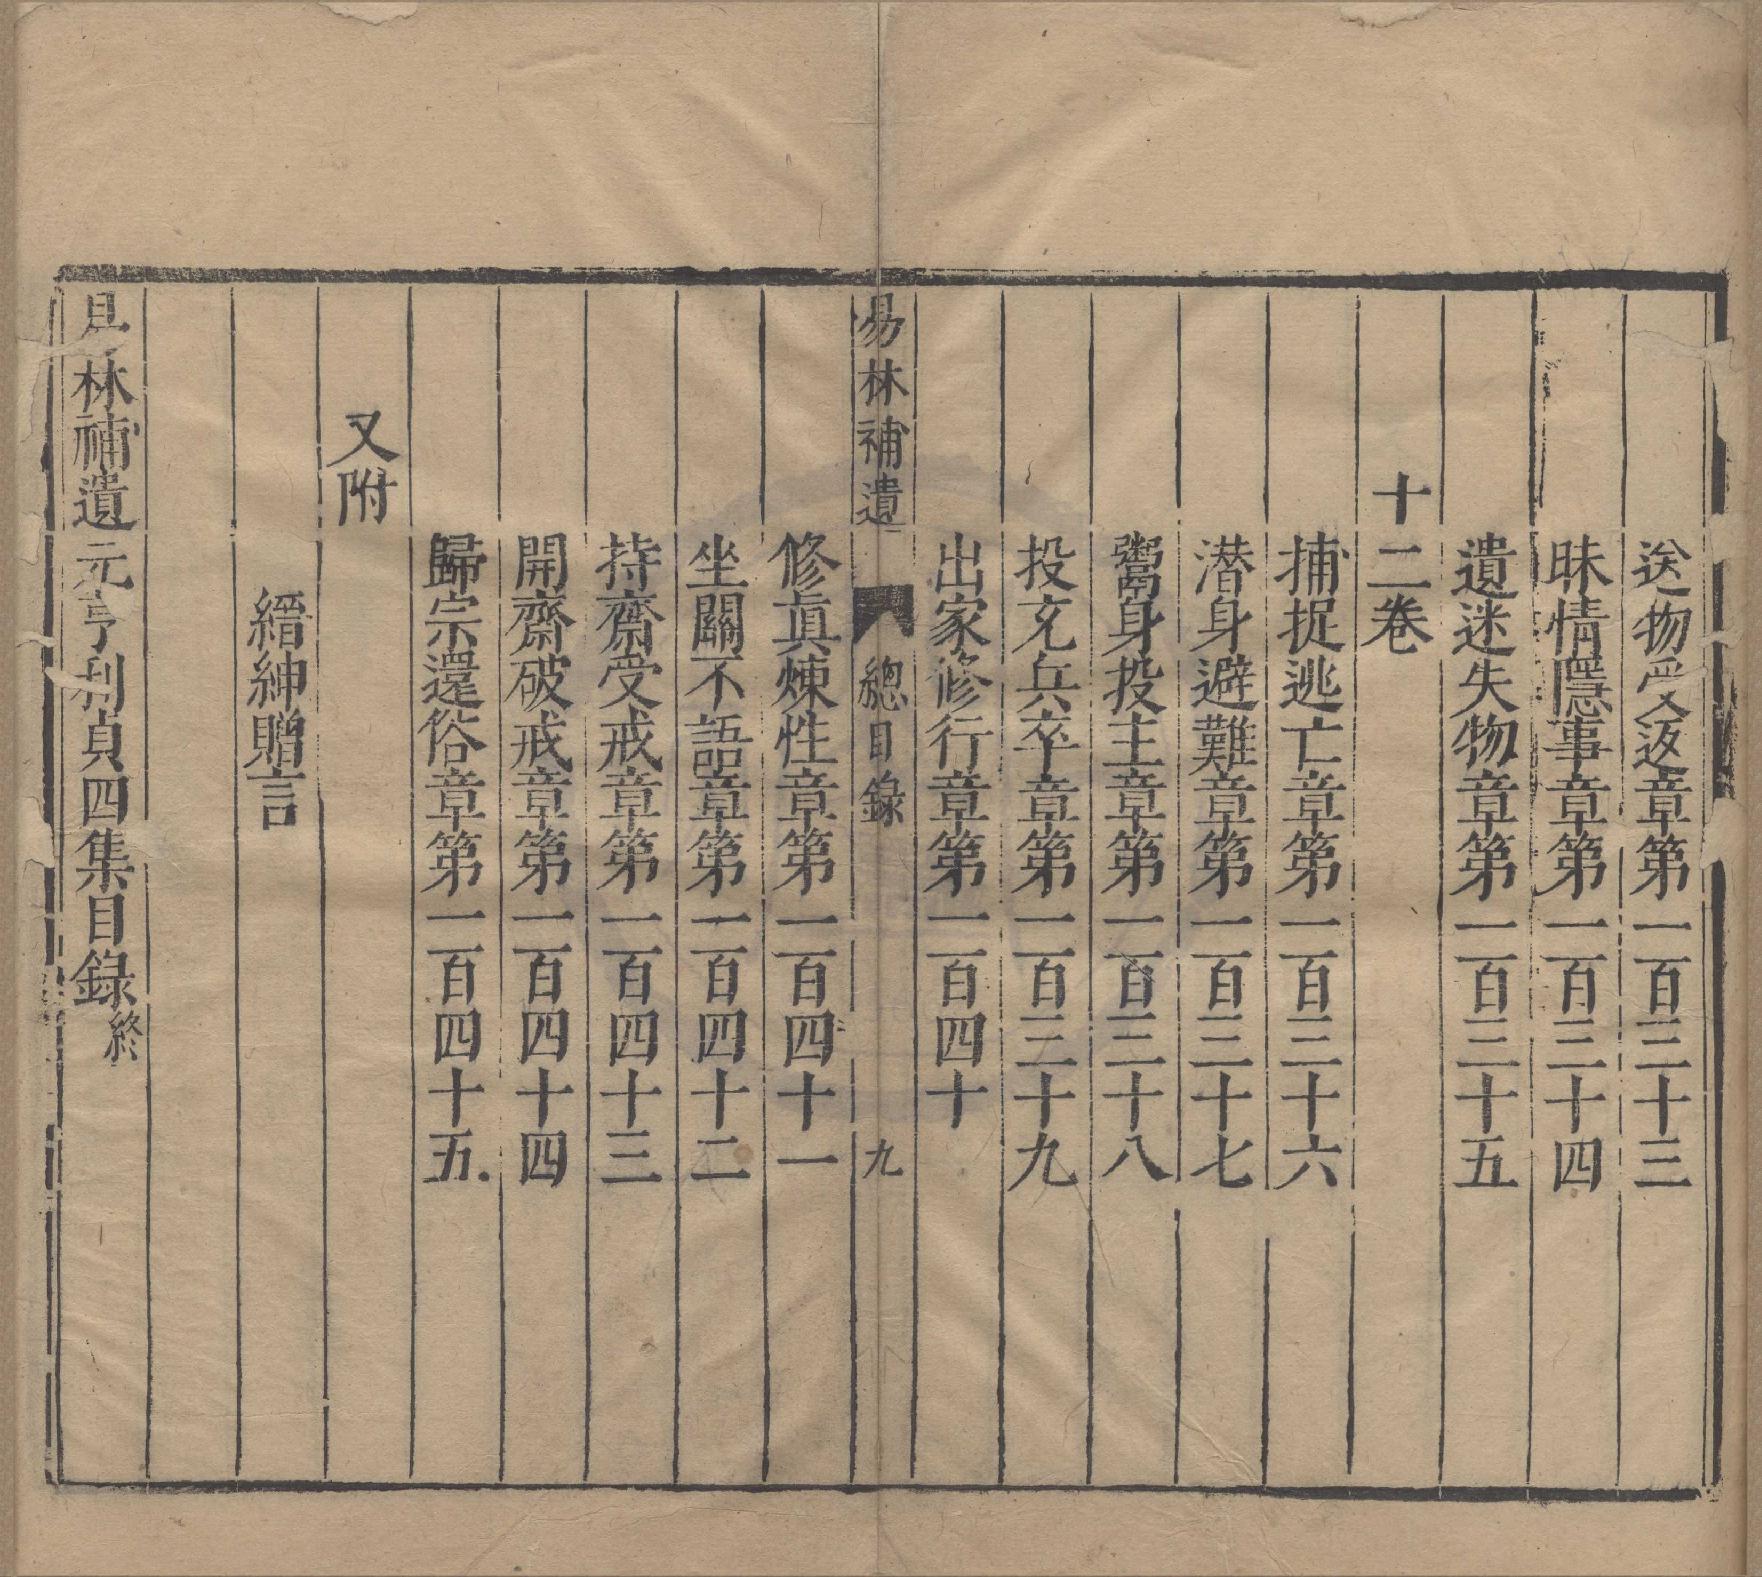 送物受返章第一百三十三
昧情隱事章第一百三十四
遺迷失物章第一百三十五
十二卷
捕捉逃亡章第一百三十六
潛身避難章第一百三十七
鬻身投主章第一百三十八
投充兵卒章第一百三十九
出家修行章第一百四十
易林補遺 總目錄 九
修眞煉性章第一百四十一
坐關不語章第一百四十二
持齋受戒章第一百四十三
開齋破戒章第一百四十四
歸宗還俗章第一百四十五
又附
縉紳贈言
易林補遺元亨利貞四集目錄終